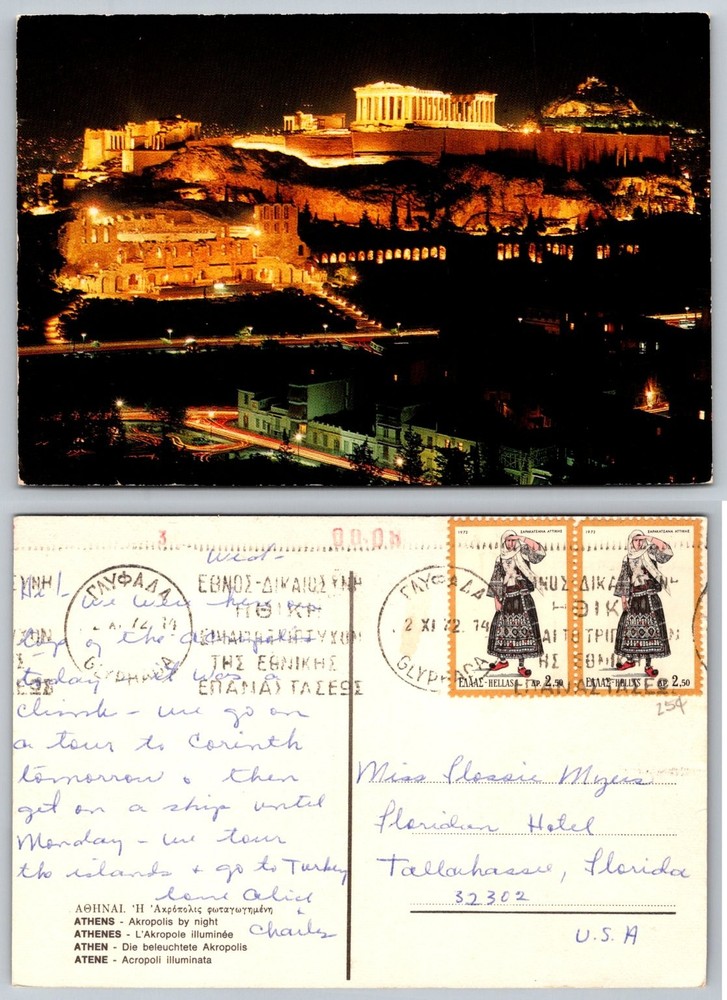 3
00.08
Wed-
Hi! - We were here on
top of the Acropolis
today - it was a
climb - we go on
a tour to Corinth
tomorrow & then
get on a ship until
Monday - we tour
the islands & go to Turkey
love Alice
&
Charles
ΑΘΗΝΑΙ. Ἡ Ἀκρόπολις φωταγωγημένη
ATHENS - Akropolis by night
ATHENES - L'Akropole illuminée
ATHEN - Die beleuchtete Akropolis
ATENE - Acropoli illuminata
ΓΛΥΦΑΔΑ
72.14
GLYPHADA
ΕΘΝΟΣ-ΔΙΚΑΙΟΣΥΝΗ
ΗΘΙΚΗ
ΤΗΣ ΕΘΝΙΚΗΣ
ΕΠΑΝΑΣΤΑΣΕΩΣ
ΓΛΥΦΑΔΑ
2 XI 72.14
GLYPHADA
1972 ΣΑΡΑΚΑΤΣΑΝΑ ΑΤΤΙΚΗΣ
ΕΛΛΑΣ-HELLAS ΔΡ. 2.50
1972 ΣΑΡΑΚΑΤΣΑΝΑ ΑΤΤΙΚΗΣ
ΕΛΛΑΣ-HELLAS ΔΡ. 2.50
25¢
Miss Flossie
Floridan Hotel
Tallahassee, Florida
32302
U.S.A